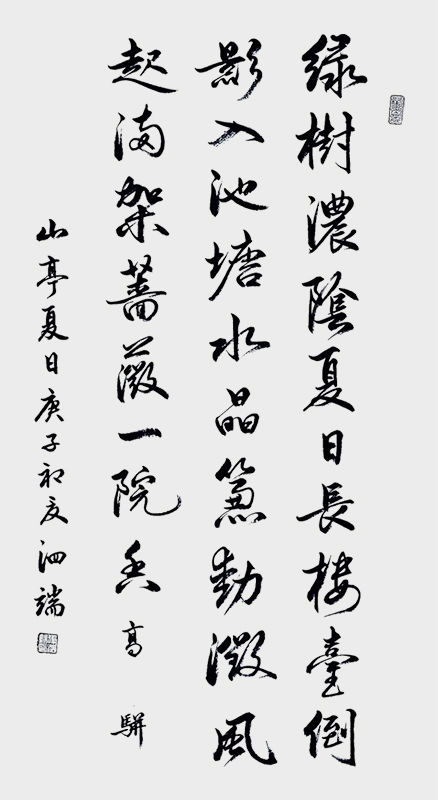 綠樹濃陰夏日長樓臺倒
影入池塘水晶簾動微風
起滿架薔薇一院香高駢
山亭夏日庚子初夏泗端